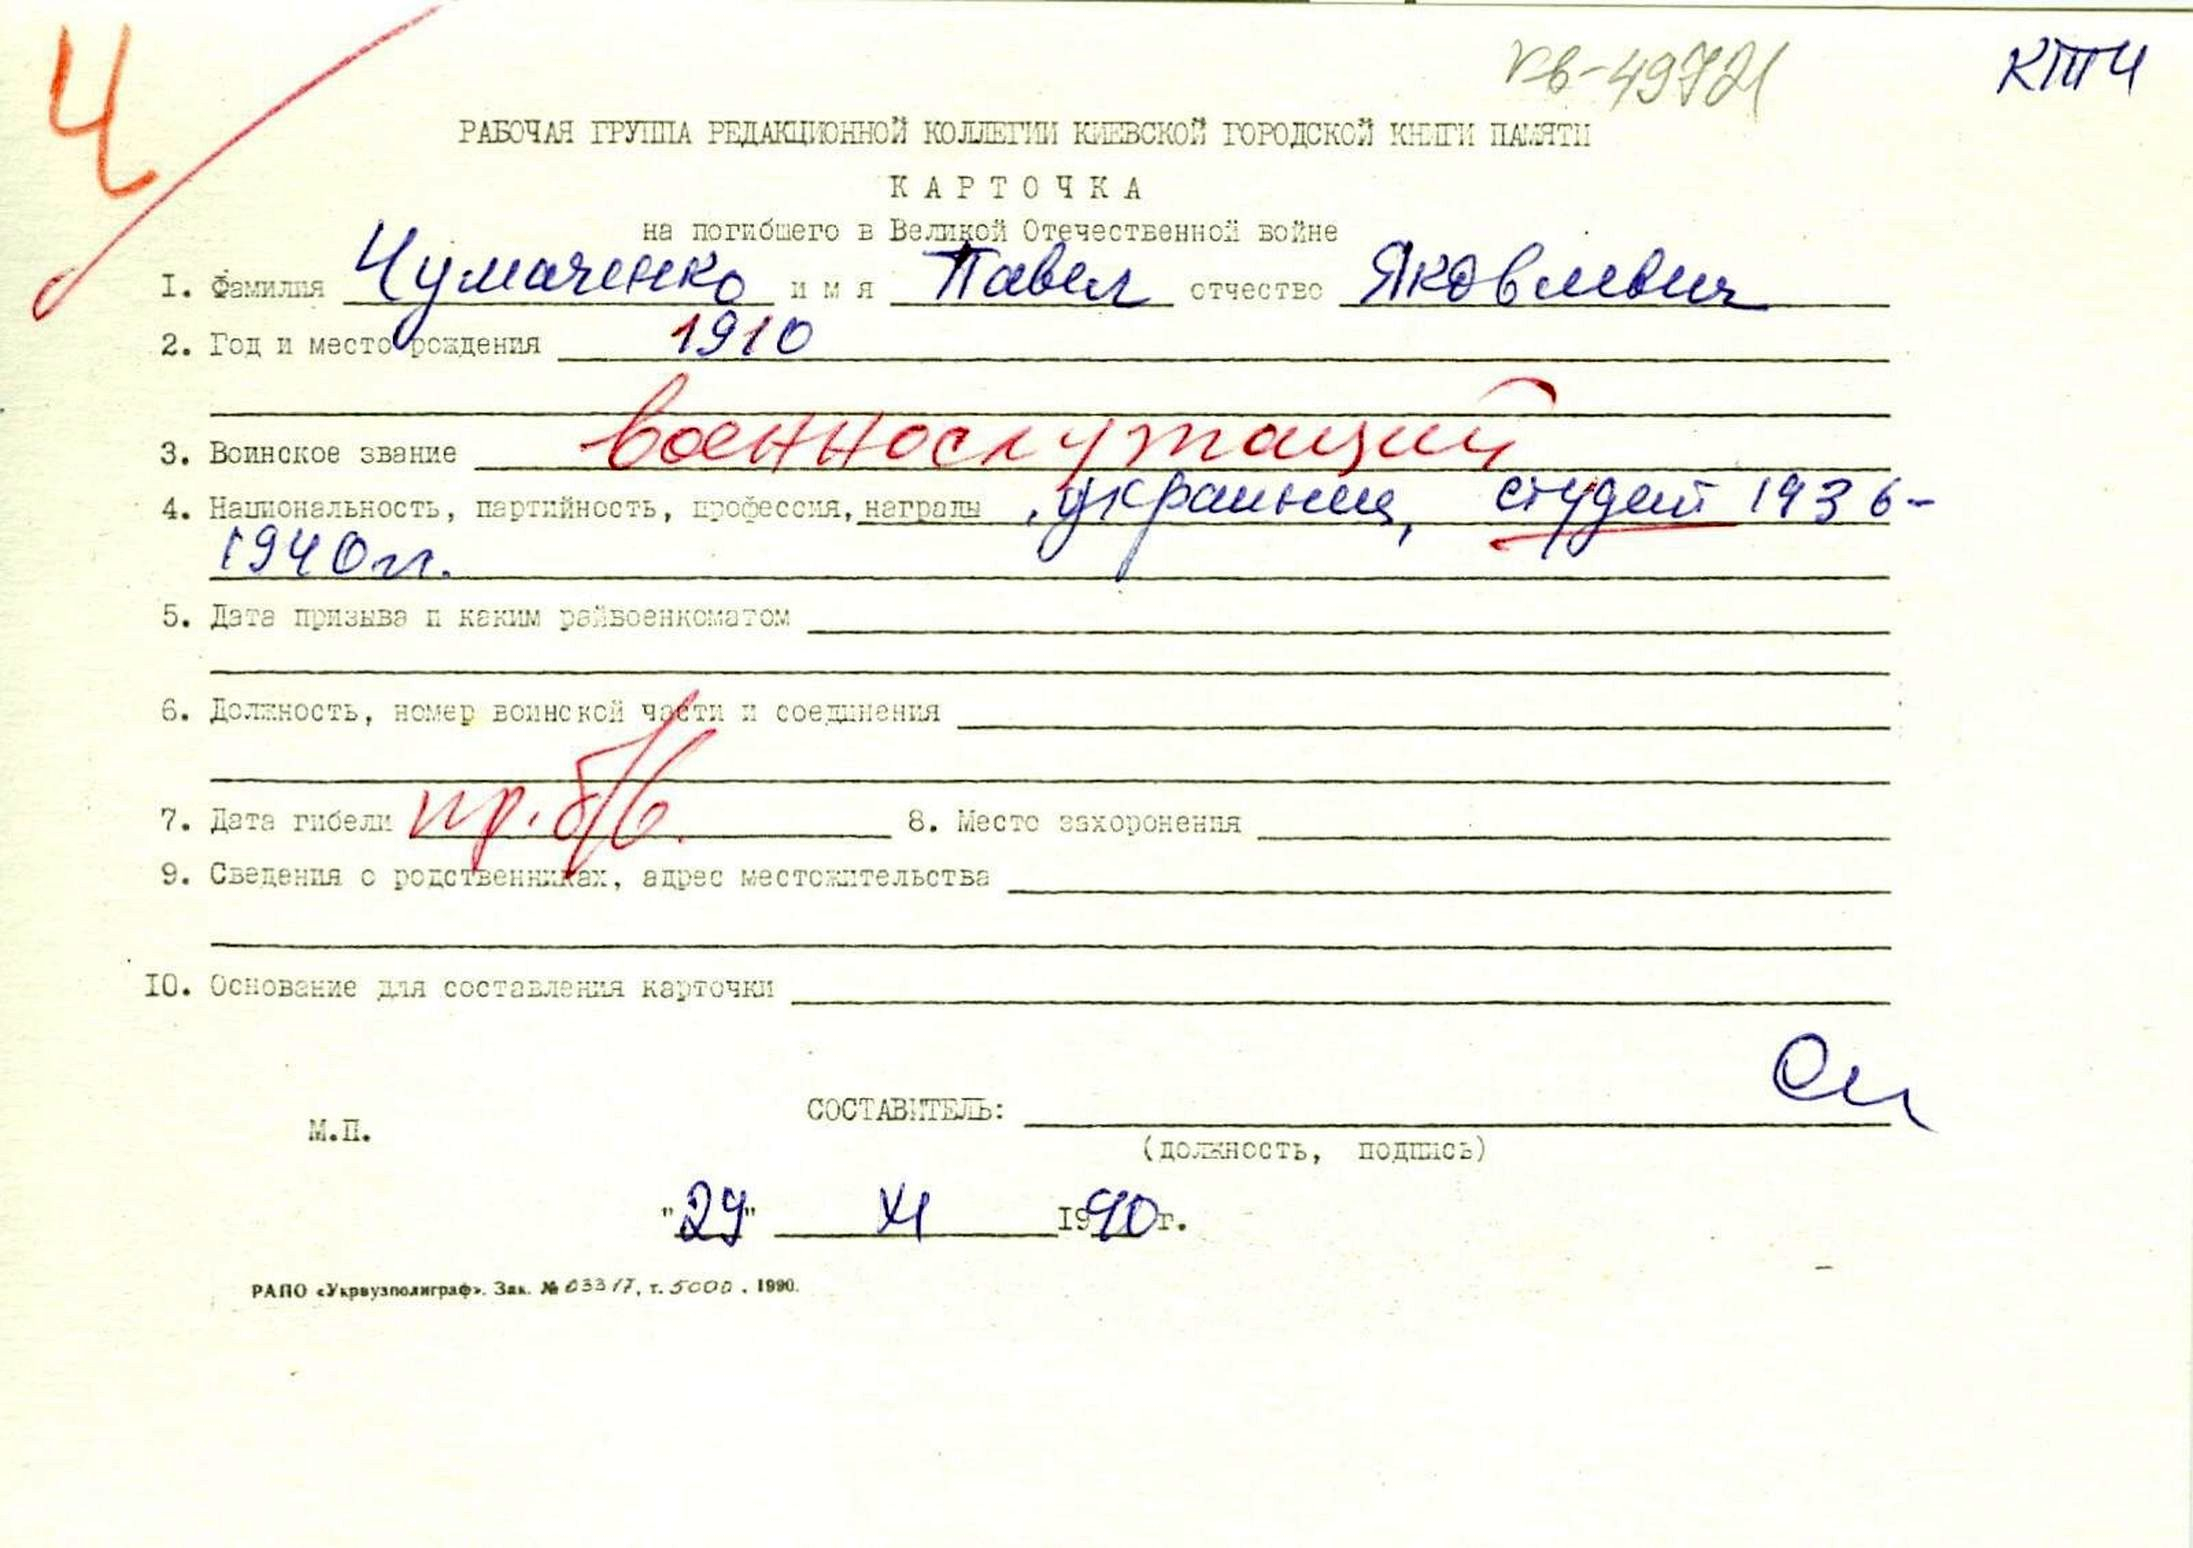 Ч
кв-49721 КТПЧ
РАБОЧАЯ ГРУППА РЕДАКЦИОННОЙ КОЛЛЕГИИ КИЕВСКОЙ ГОРОДСКОЙ КНИГИ ПАМЯТИ
КАРТОЧКА
на погибшего в Великой Отечественной войне
1. Фамилия Чумаченко имя Павел отчество Яковлевич
2. Год и место рождения 1910
3. Воинское звание военнослужащий
4. Национальность, партийность, профессия, награды украинец, студент 1936-
1940 гг.
5. Дата призыва и каким райвоенкоматом
6. Должность, номер воинской части и соединения
7. Дата гибели пр. б/в. 8. Место захоронения
9. Сведения о родственниках, адрес местожительства
10. Основание для составления карточки
СОСТАВИТЕЛЬ:
М.П.
(должность, подпись)
"29" XI 1990 г.
РАПО «Укрвузполиграф». Зак. № 03317, т. 5000. 1990.